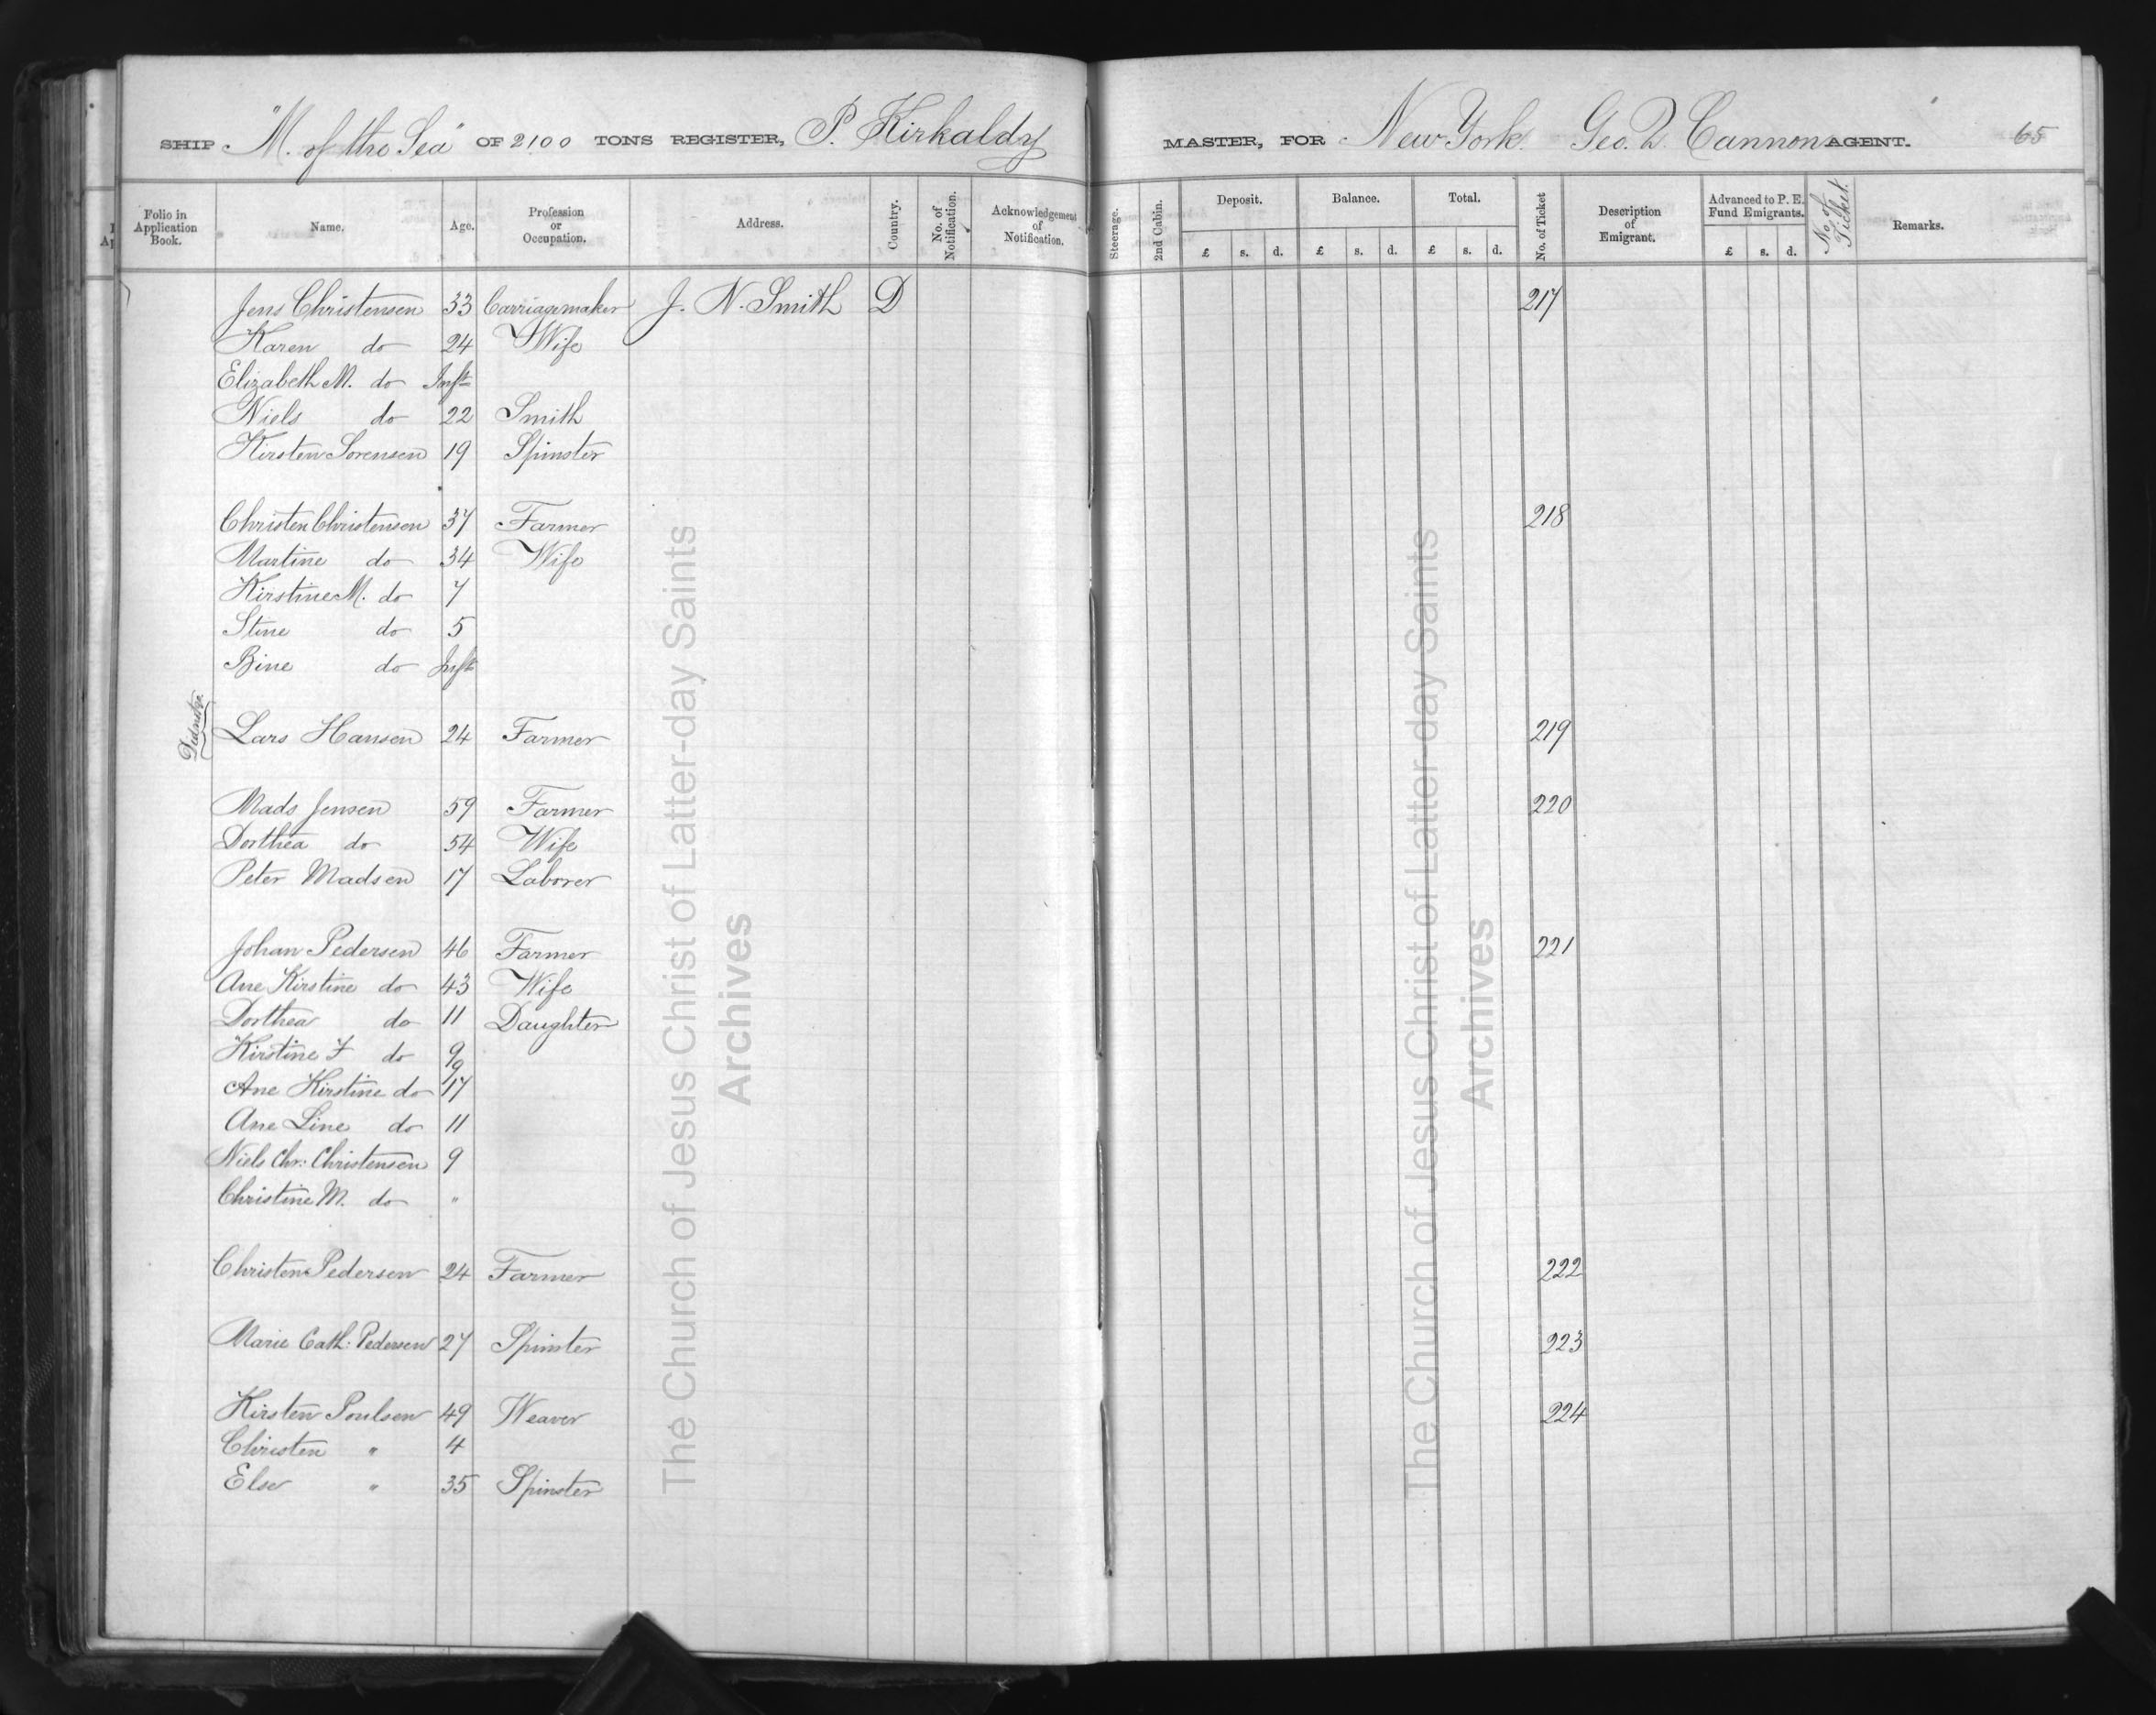 SHIP "M. of the Sea" OF 2100 TONS REGISTER, P. Kirkaldy MASTER, FOR New York. Geo. Q. Cannon AGENT. 65
Folio in Application Book. Name. Age. Profession or Occupation. Address. Country. No. of Notification. Acknowledgement of Notification. Steerage. 2nd Cabin. Deposit. £ s. d. Balance. £ s. d. Total. £ s. d. No. of Ticket Description of Emigrant. Advanced to P. E. Fund Emigrants. £ s. d. No. of Ticket. Remarks.
Jens Christensen 33 Carriagemaker J. N. Smith D 217
Karen do 24 Wife
Elizabeth M. do Inft
Niels do 22 Smith
Kirsten Sorensen 19 Spinster
Christen Christensen 37 Farmer 218
Martine do 34 Wife
Kirstine M. do 7
Stine do 5
Bine do Inft
Lars Hansen 24 Farmer 219
Mads Jensen 59 Farmer 220
Dorthea do 54 Wife
Peter Madsen 17 Laborer
Johan Pedersen 46 Farmer 221
Ane Kirstine do 43 Wife
Dorthea do 11 Daughter
Kirstine F do 9
Ane Kirstine do 17
Ane Line do 11
Niels Chr: Christensen 9
Christine M. do "
Christen Pedersen 24 Farmer 222
Marie Cath: Pedersen 27 Spinster 223
Kirsten Poulsen 49 Weaver 224
Christen " 4
Else " 35 Spinster
The Church of Jesus Christ of Latter-day Saints
Archives
The Church of Jesus Christ of Latter-day Saints
Archives